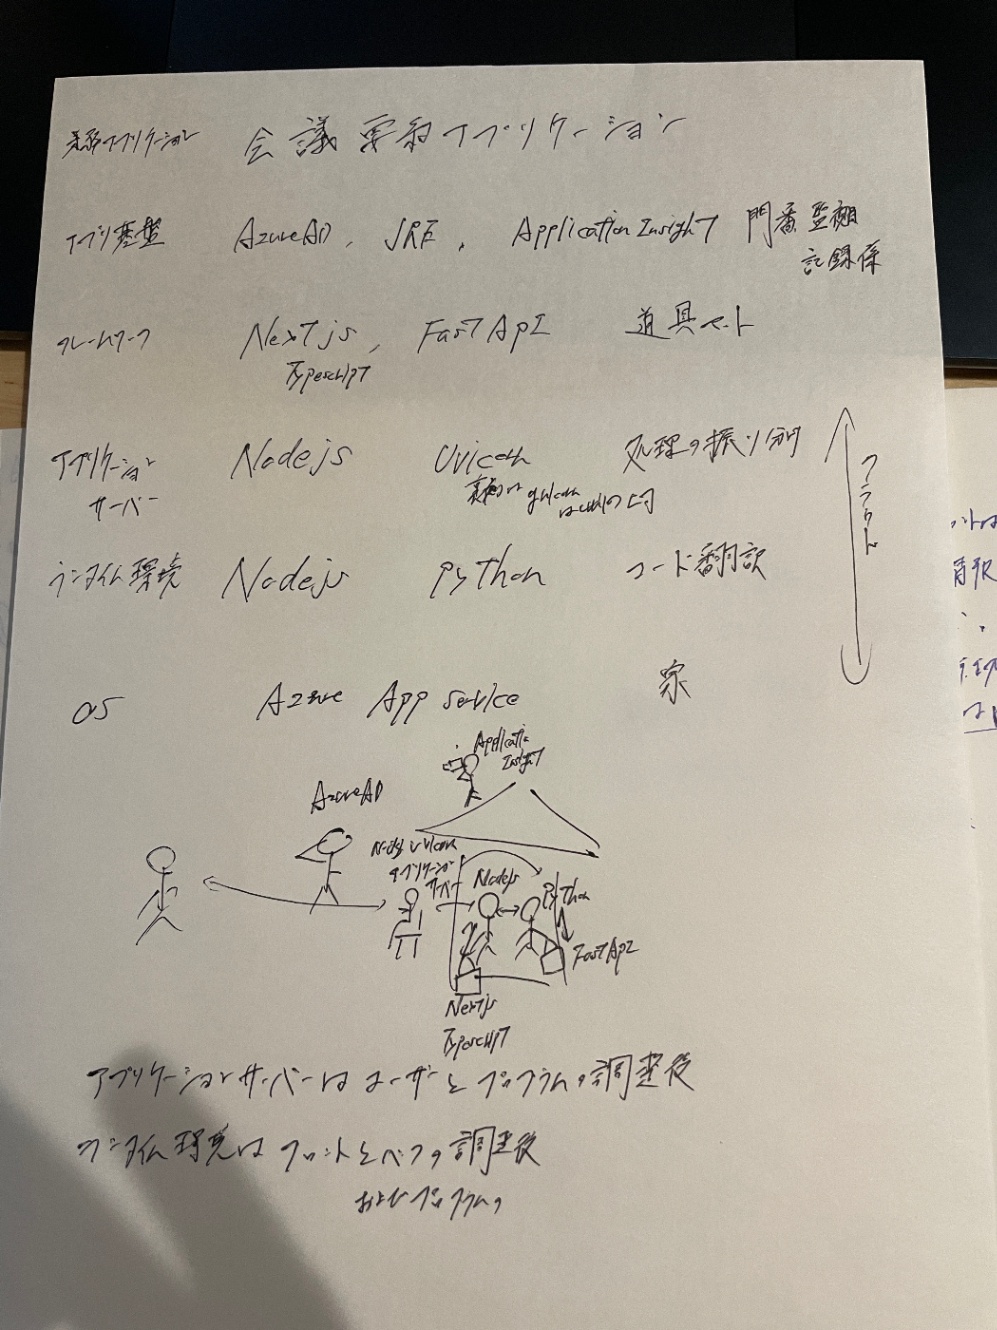 業務アプリケーション 会議要約アプリケーション
アプリ基盤 AzureAD, JRE, Application Insight 門番 監視
記録係
フレームワーク Nextjs, FastApI 道具セット
Typescript
アプリケーション Nodejs Uvicorn 処理の振り分け
サーバー
ランタイム環境 Nodejs Python コード翻訳
クラウド
OS Azure App service 家
Applicatio
Insight
AzureAD
Nodejs uvicorn
アプリケーション
サーバー
Nodejs
Python
FastApI
Nextjs
Typescript
アプリケーションサーバーはユーザーとプログラムの調整役
ランタイム環境はフロントとバックの調整役
およびプログラムの